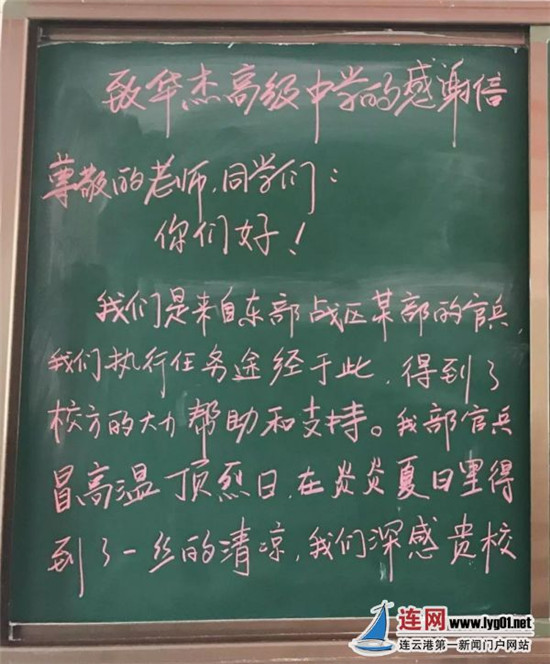 致华杰高级中学的感谢信
尊敬的老师,同学们:
你们好!
我们是来自东部战区某部的官兵,
我们执行任务途经于此,得到了
校方的大力帮助和支持。我部官兵
冒高温顶烈日,在炎炎夏日里得
到了一丝的清凉,我们深感贵校
连网 www.lyg01.net
连云港第一新闻门户网站